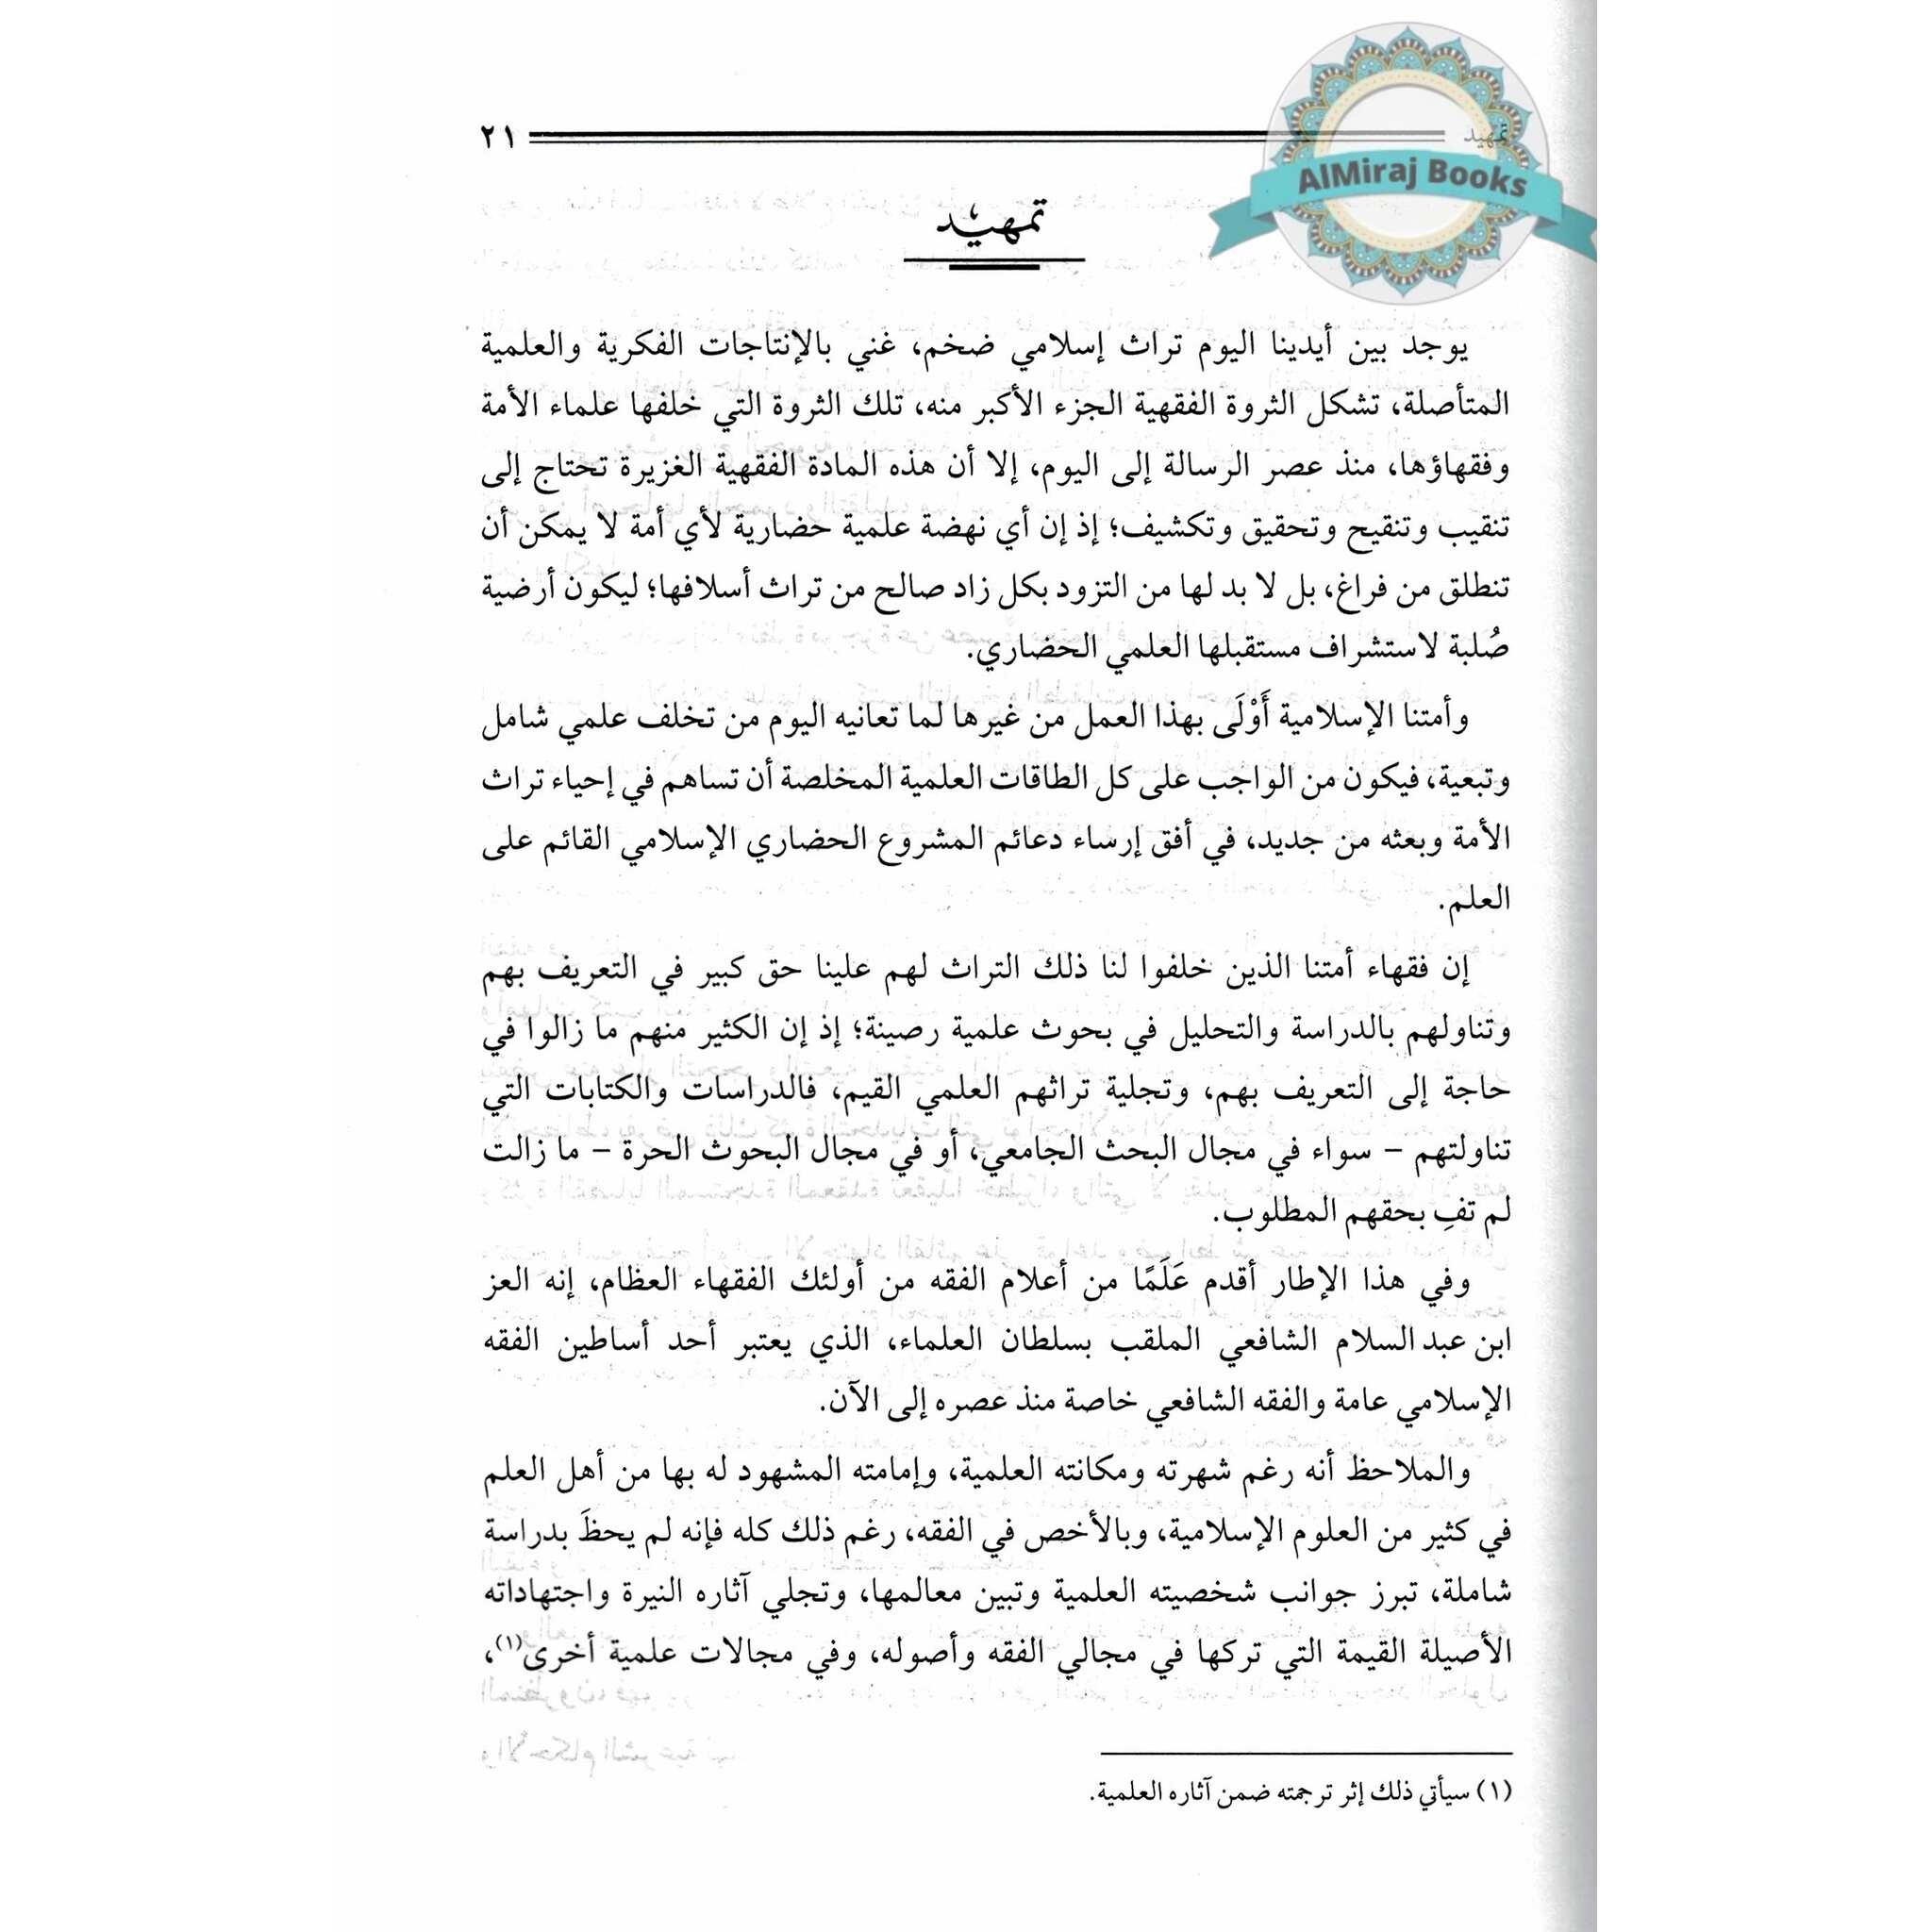 تمهيد ٢١
AlMiraj Books
تمهيد
يوجد بين أيدينا اليوم تراث إسلامي ضخم، غني بالإنتاجات الفكرية والعلمية
المتأصلة، تشكل الثروة الفقهية الجزء الأكبر منه، تلك الثروة التي خلفها علماء الأمة
وفقهاؤها، منذ عصر الرسالة إلى اليوم، إلا أن هذه المادة الفقهية الغزيرة تحتاج إلى
تنقيب وتنقيح وتحقيق وتكشيف؛ إذ إن أي نهضة علمية حضارية لأي أمة لا يمكن أن
تنطلق من فراغ، بل لا بد لها من التزود بكل زاد صالح من تراث أسلافها؛ ليكون أرضية
صُلبة لاستشراف مستقبلها العلمي الحضاري.
وأمتنا الإسلامية أَوْلَى بهذا العمل من غيرها لما تعانيه اليوم من تخلف علمي شامل
وتبعية، فيكون من الواجب على كل الطاقات العلمية المخلصة أن تساهم في إحياء تراث
الأمة وبعثه من جديد، في أفق إرساء دعائم المشروع الحضاري الإسلامي القائم على
العلم.
إن فقهاء أمتنا الذين خلفوا لنا ذلك التراث لهم علينا حق كبير في التعريف بهم
وتناولهم بالدراسة والتحليل في بحوث علمية رصينة؛ إذ إن الكثير منهم ما زالوا في
حاجة إلى التعريف بهم، وتجلية تراثهم العلمي القيم، فالدراسات والكتابات التي
تناولتهم – سواء في مجال البحث الجامعي، أو في مجال البحوث الحرة – ما زالت
لم تفِ بحقهم المطلوب.
وفي هذا الإطار أقدم عَلَمًا من أعلام الفقه من أولئك الفقهاء العظام، إنه العز
ابن عبد السلام الشافعي الملقب بسلطان العلماء، الذي يعتبر أحد أساطين الفقه
الإسلامي عامة والفقه الشافعي خاصة منذ عصره إلى الآن.
والملاحظ أنه رغم شهرته ومكانته العلمية، وإمامته المشهود له بها من أهل العلم
في كثير من العلوم الإسلامية، وبالأخص في الفقه، رغم ذلك كله فإنه لم يحظَ بدراسة
شاملة، تبرز جوانب شخصيته العلمية وتبين معالمها، وتجلي آثاره النيرة واجتهاداته
الأصيلة القيمة التي تركها في مجالي الفقه وأصوله، وفي مجالات علمية أخرى(١)،
(١) سيأتي ذلك إثر ترجمته ضمن آثاره العلمية.